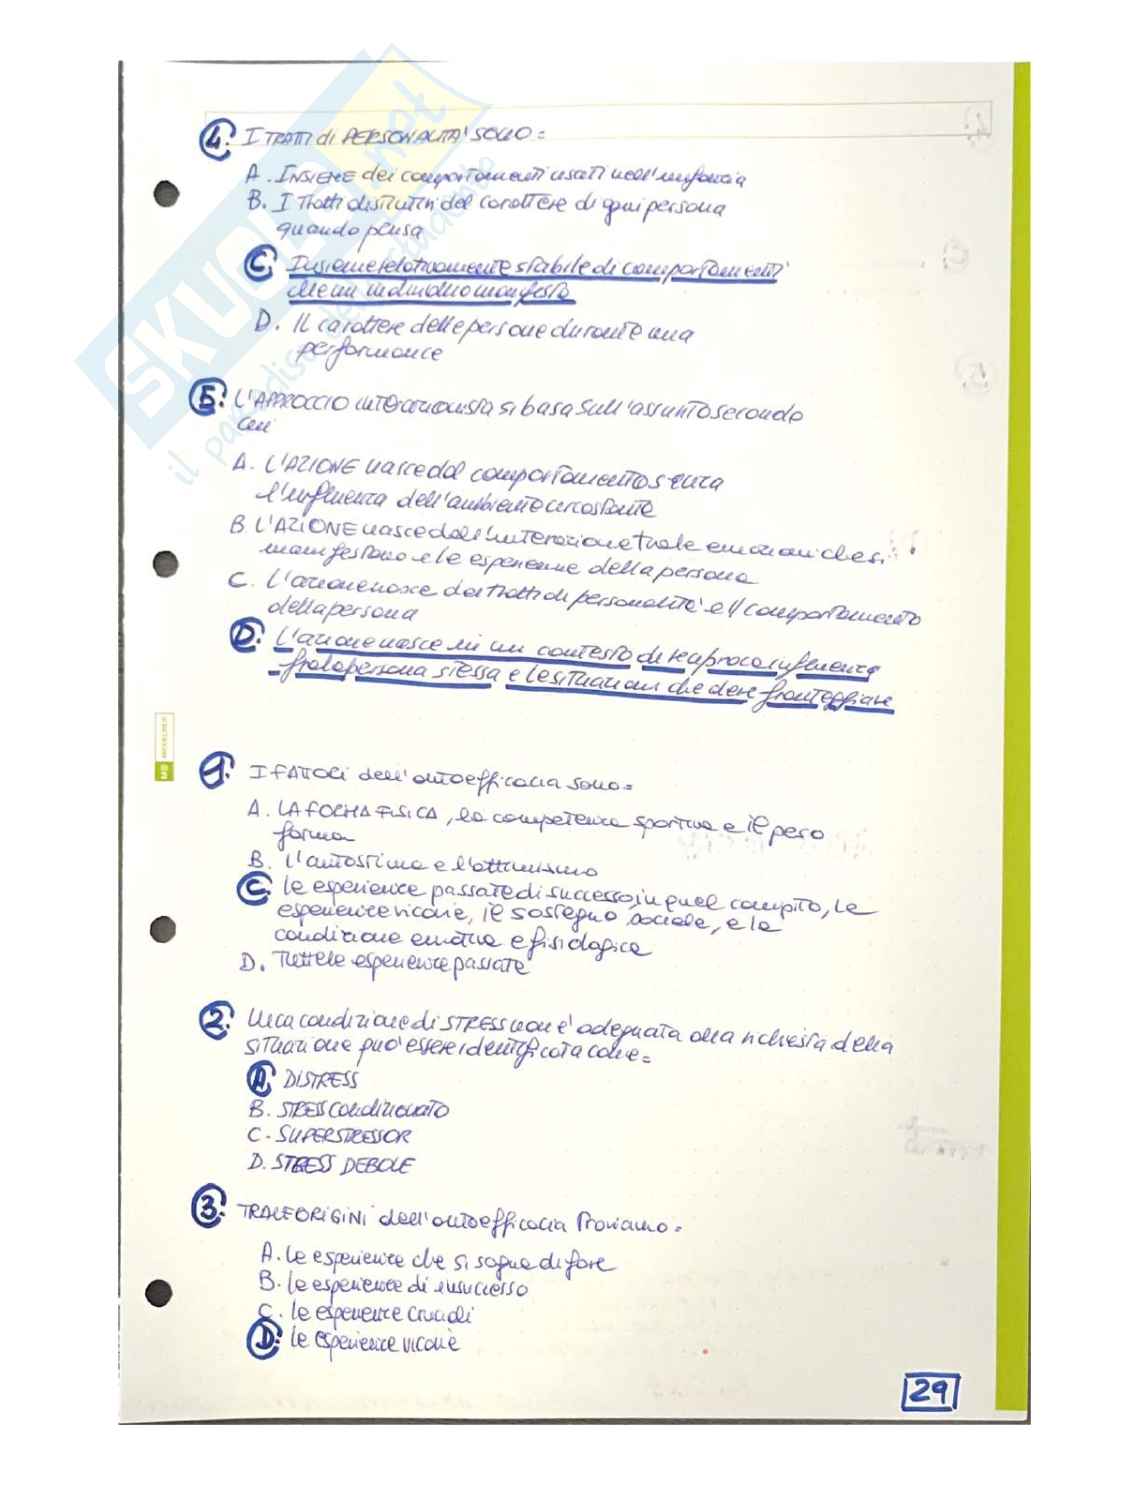 4. I TRATTI di PERSONALITA' SONO =
A. INSIEME dei comportamenti usati nell'infanzia
B. I tratti distintivi del carattere di ogni persona
quando pensa
C. Insieme relativamente stabile di comportamenti
che un individuo manifesta
D. Il carattere delle persone durante una
performance
5. L'APPROCCIO interazionista si basa sull'assunto secondo
cui
A. L'AZIONE nasce dal comportamento senza
l'influenza dell'ambiente circostante
B. L'AZIONE nasce dall'interazione tra le emozioni che si
manifestano e le esperienze della persona
C. L'azione nasce dai tratti di personalità e il comportamento
della persona
D. L'azione nasce in un contesto di reciproca influenza
fra la persona stessa e le situazioni che deve fronteggiare
1. I FATTORI dell'autoefficacia sono =
A. LA FORMA FISICA, la competenza sportiva e il peso
forma
B. L'autostima e l'ottimismo
C. le esperienze passate di successo, in quel compito, le
esperienze vicarie, il sostegno sociale, e la
condizione emotiva e fisiologica
D. Tutte le esperienze passate
2. Una condizione di STRESS non è adeguata alla richiesta della
situazione può essere identificata come =
A. DISTRESS
B. STRESS condizionato
C. SUPERSTRESSOR
D. STRESS DEBOLE
3. TRA LE ORIGINI dell'autoefficacia troviamo =
A. Le esperienze che si sogna di fare
B. le esperienze di insuccesso
C. le esperienze cruciali
D. le esperienze vicarie
29
SKUOLA.net
il paradiso dello studente